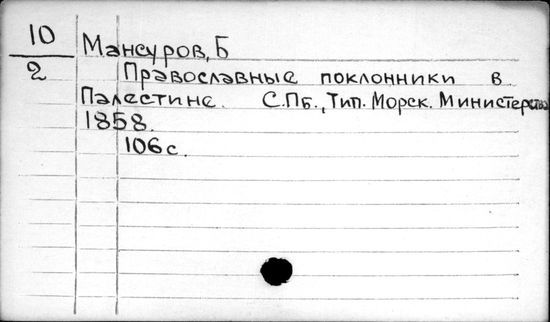 10
2
Мансуров, Б
Православные поклонники в
Палестине. С.Пб., Тип. Морск. Министерства
1858.
106 с.